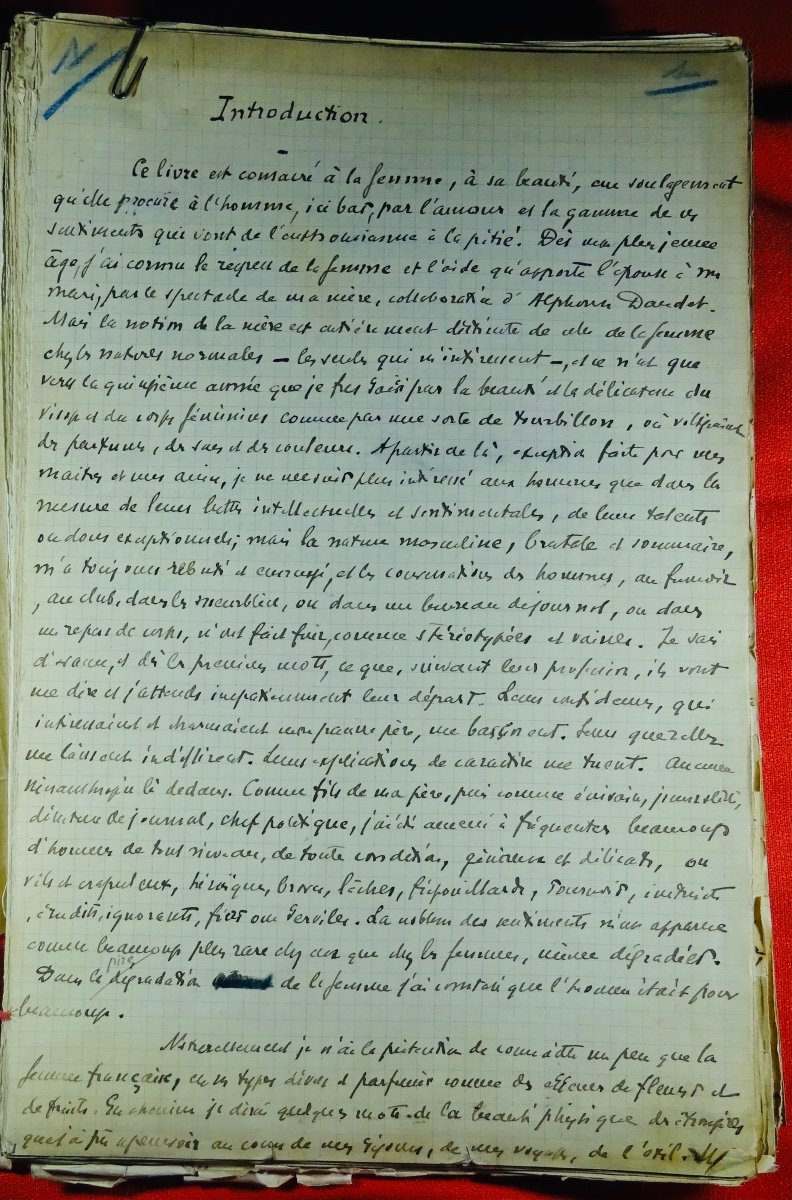 Introduction.
Ce livre est consacré à la femme, à sa beauté, au soulagement
qu'elle procure à l'homme, ici bas, par l'amour et la gamme de ces
sentiments qui vont de l'enthousiasme à la pitié. Dès mon plus jeune
âge, j'ai connu le respect de la femme et l'aide qu'apporte l'épouse à son
mari, par le spectacle de ma mère, collaboratrice d'Alphonse Daudet.
Mais la notion de la mère est entièrement distincte de celle de la femme
chez les natures normales — les seules qui m'intéressent —, et ce n'est que
vers la quinzième année que je fus saisi par la beauté et la délicatesse du
visage et du corps féminins comme par une sorte de tourbillon, où voltigeaient
des parfums, des sons et des couleurs. A partir de là, exception faite pour mes
maîtres et mes amis, je ne me suis plus intéressé aux hommes que dans la
mesure de leurs luttes intellectuelles et sentimentales, de leurs talents
ou dons exceptionnels; mais la nature masculine, brutale et sommaire,
m'a toujours rebuté et ennuyé, et les conversations des hommes, au fumoir
, au club, dans les assemblées, ou dans un bureau de journal, ou dans
un repas de corps, m'ont fait fuir, comme stéréotypées et vaines. Je sais
d'avance, et dès les premiers mots, ce que, suivant leur profession, ils vont
me dire et j'attends impatiemment leur départ. Leurs confidences, qui
intéressaient et charmaient mon pauvre père, me rasent. Leurs querelles
me laissent indifférent. Leurs explications de caractère me tuent. Aucune
misanthropie là dedans. Comme fils de mon père, puis comme écrivain, journaliste,
directeur de journal, chef politique, j'ai été amené à fréquenter beaucoup
d'hommes de tout niveau, de toute condition, généreux et délicats, ou
vils et crapuleux, héroïques, braves, lâches, fripouillards, sournois, instruits
, érudits, ignorants, fiers ou serviles. La noblesse des sentiments m'est apparue
comme beaucoup plus rare chez eux que chez les femmes, même dégradées.
Dans la pire dégradation de la femme j'ai constaté que l'homme était pour
beaucoup.
Naturellement je n'ai la prétention de connaître un peu que la
femme française, en ses types divers et parfumés comme des essences de fleurs et
de fruits. En chemin je dirai quelques mots de la beauté physique des étrangères
que j'ai pu apercevoir au cours de mes séjours, de mes voyages, de l'exil.